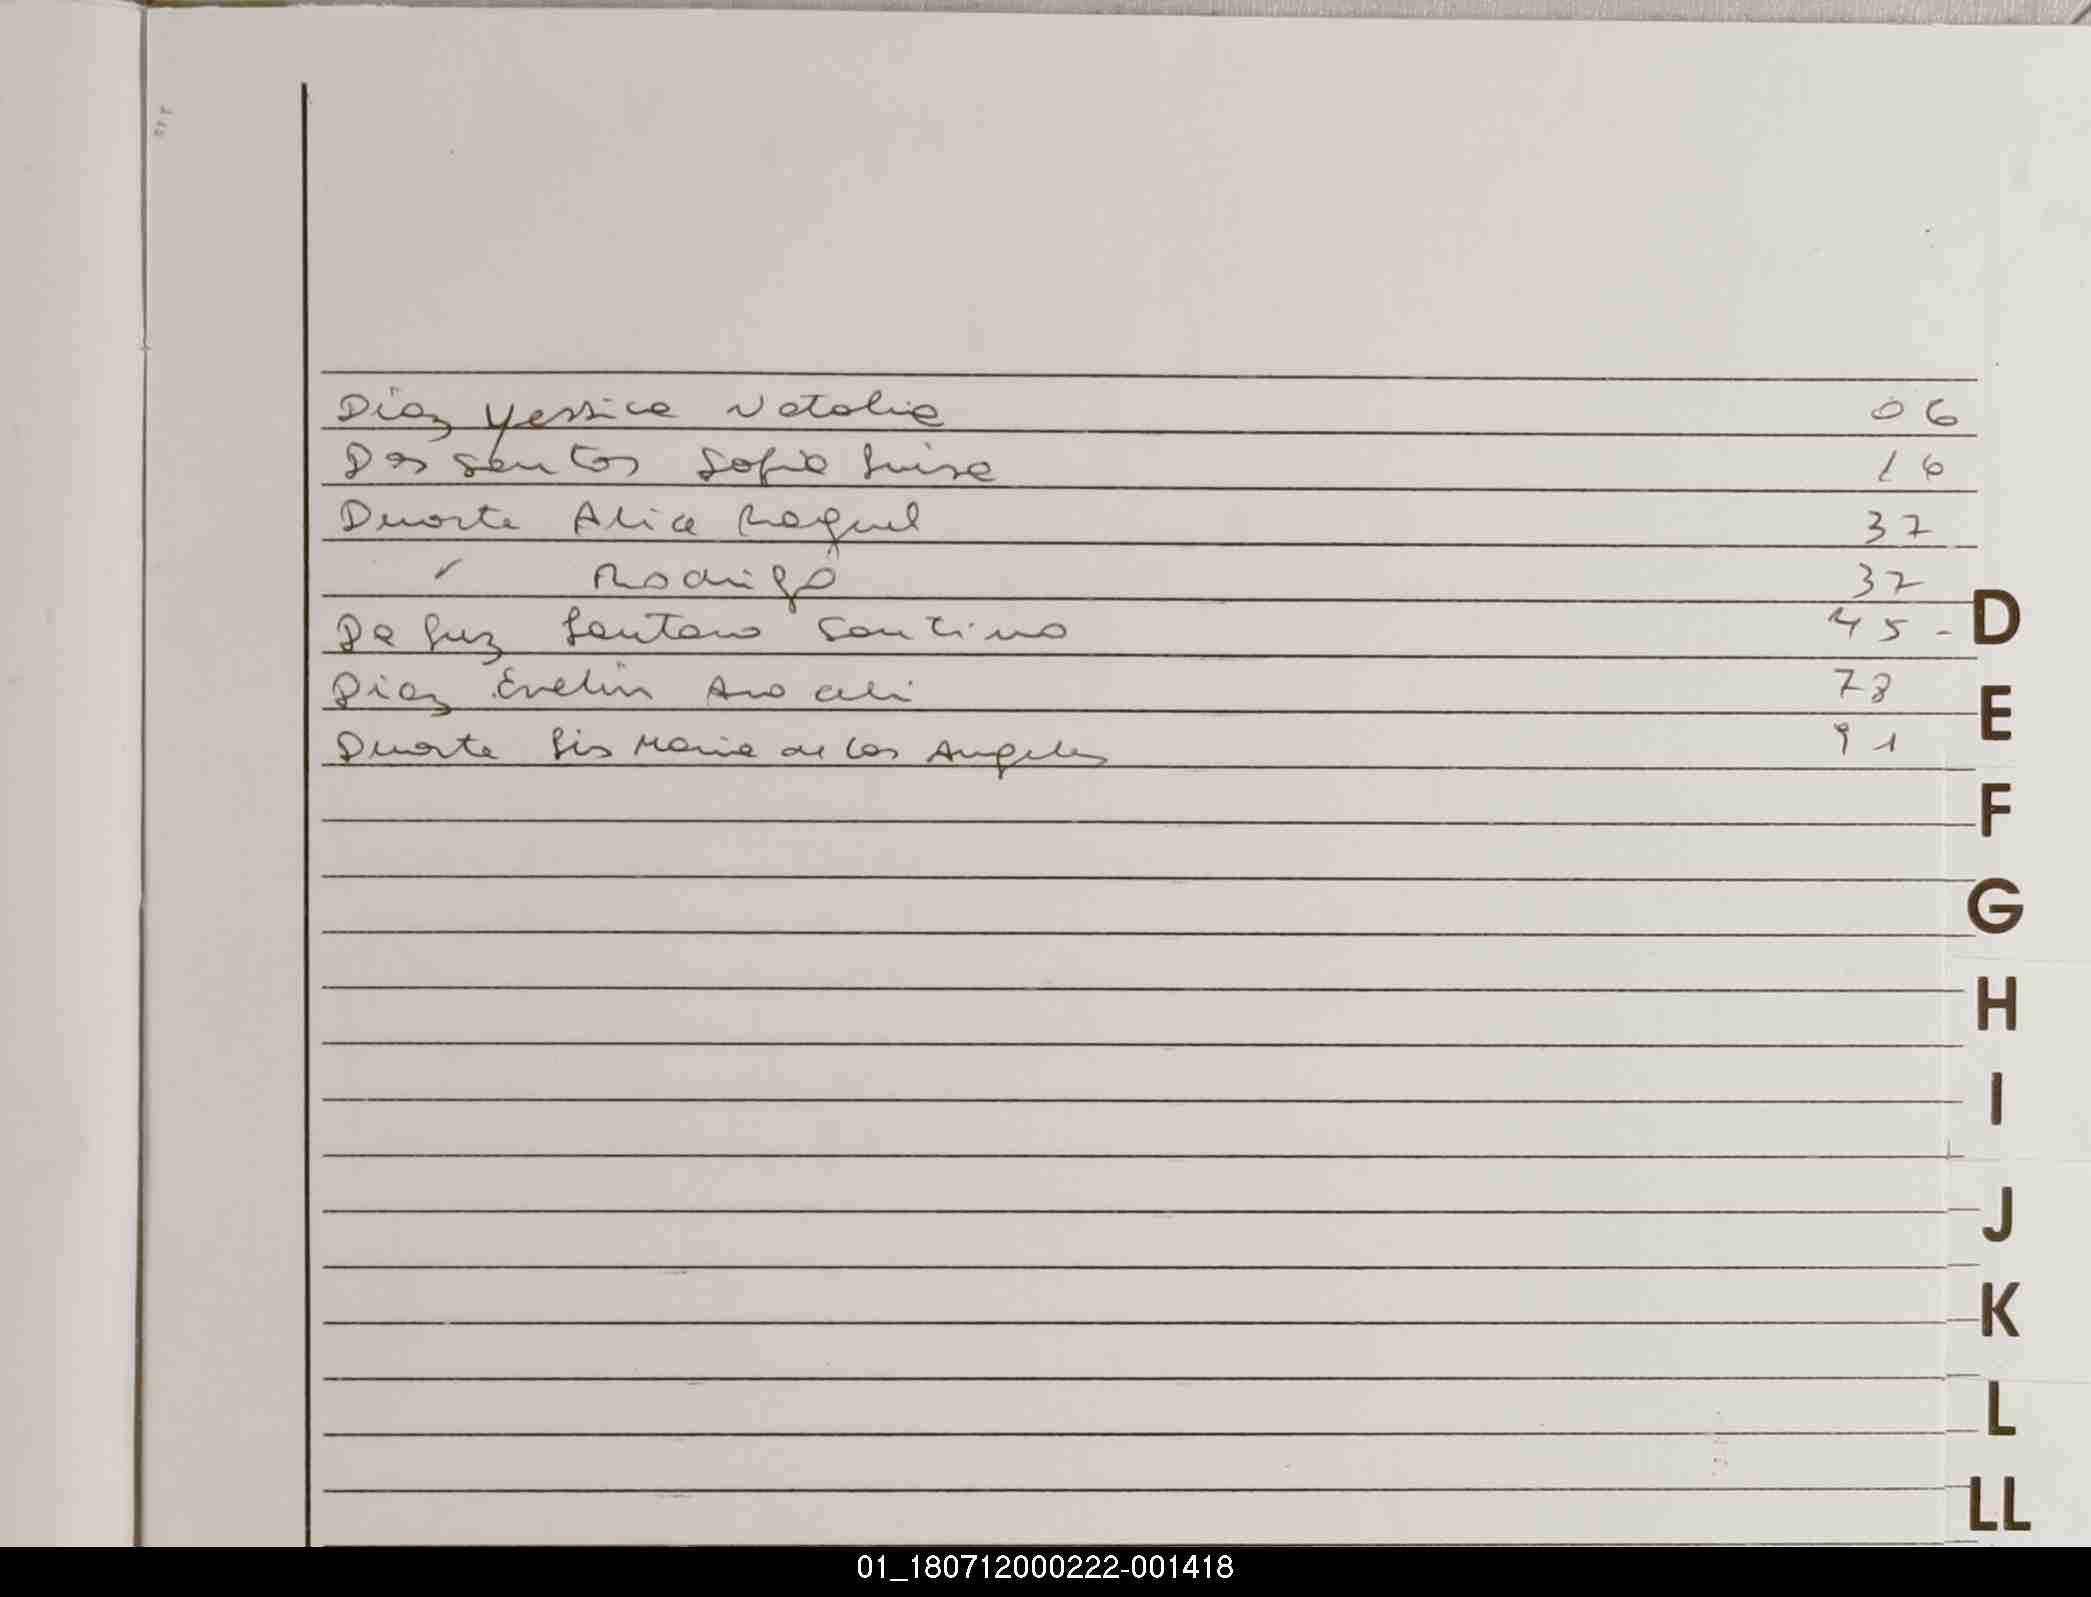 Diaz Yessica Natalia 06
Dos Santos Sofia Luisa 16
Duarte Alice Raquel 37
" Rodrigo 37
Da Luz Lautaro Santino 45 -
Diaz Evelin Araceli 78
Duarte Lis Maria de los Angeles 91
D
E
F
G
H
I
J
K
L
LL
01_180712000222-001418